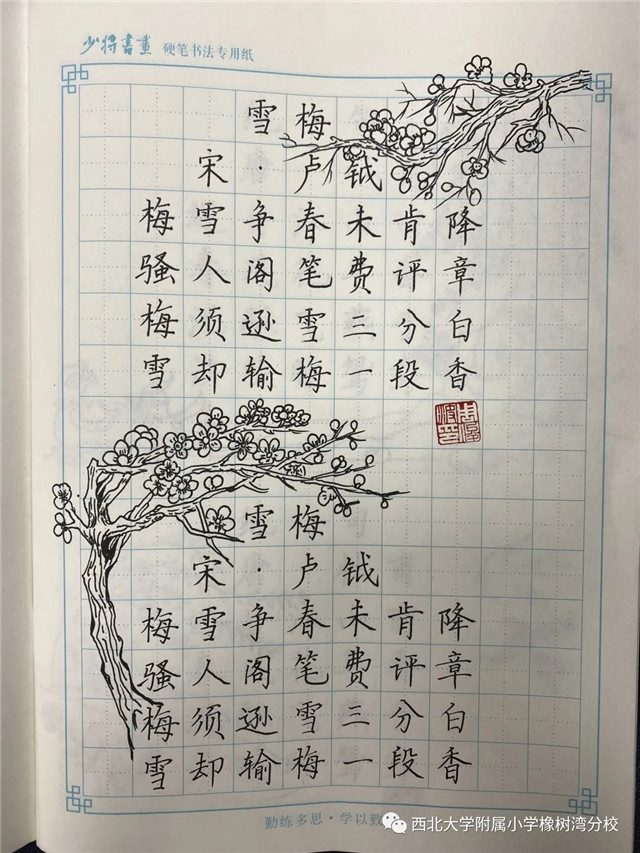 少将書畫 硬笔书法专用纸
雪梅
宋·卢钺
梅雪争春未肯降
骚人阁笔费评章
梅须逊雪三分白
雪却输梅一段香
雪梅
宋·卢钺
梅雪争春未肯降
骚人阁笔费评章
梅须逊雪三分白
雪却输梅一段香
勤练多思·学以致
西北大学附属小学橡树湾分校